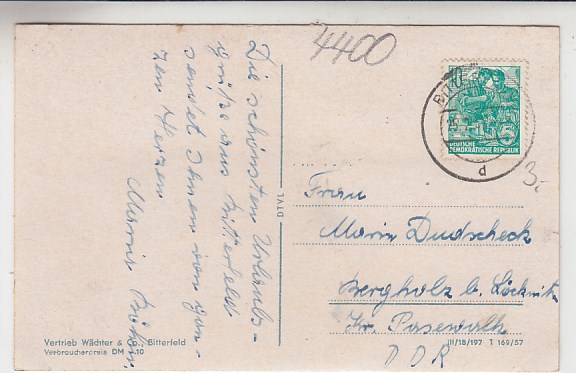 4400
Die schönsten Urlaubs-
grüße aus Bitterfeld
sendet Ihnen von gan-
zem Herzen
DEUTSCHE
DEMOKRATISCHE REPUBLIK
5
d
3.-
Frau
Marie Dudscheck
Bergholz b. Löcknitz
Kr. Pasewalk
DDR
Vertrieb Wächter & Co., Bitterfeld
Verbraucherpreis DM -,10
III/18/197 T 169/57